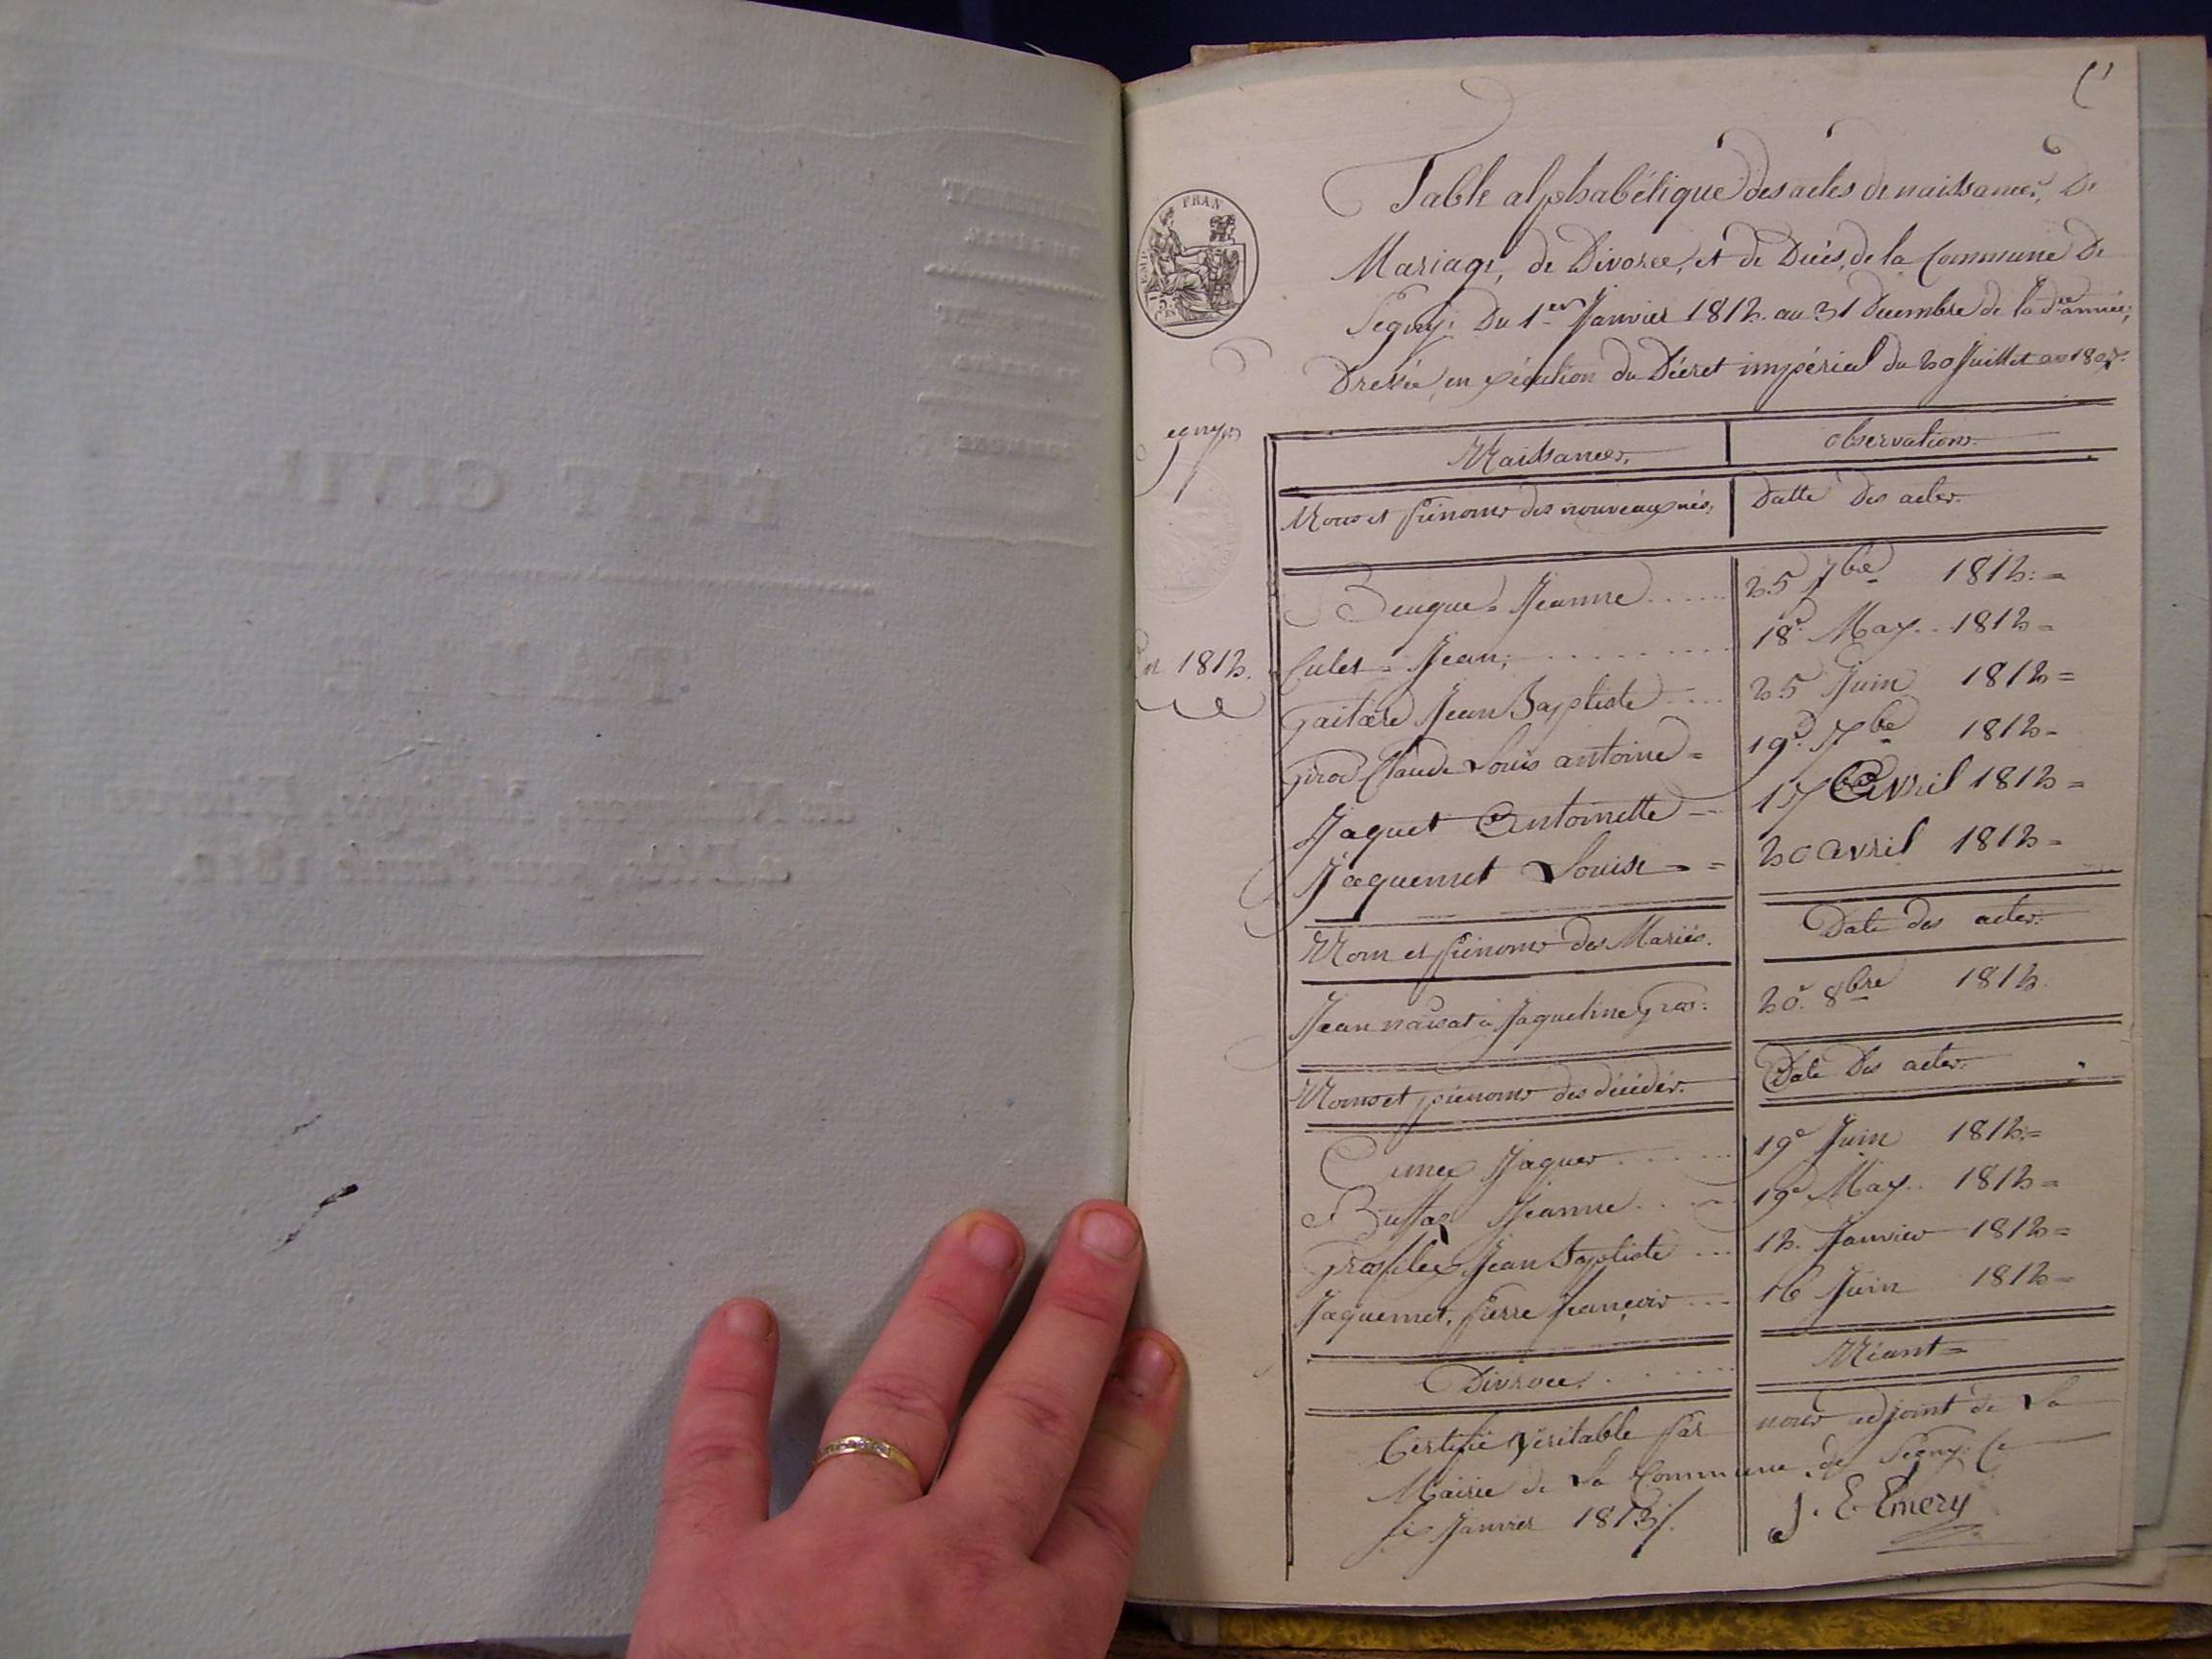 Table alphabétique des actes de naissances, De
Mariage, de Divorce, et de Décès, de la Commune De
Segny; Du 1er Janvier 1812. au 31 Decembre de la d.e année;
Dressée en exécution du Décret impérial du 20 Juillet an 1807.
egny
en 1812.
Naissances,
observations.
Noms et prénoms des nouveaux nés,
Datte Des actes.
Jeanne
25 7bre 1812. =
Jean;
18e May. 1812 =
Jean Baptiste
25 Juin 1812 =
Girod Claude Louis antoine =
19e 7bre 1812 -
Jaquet Antoinette
17 avril 1812 =
Jaquemet Louise =
20 avril 1812 =
Nom et prénoms des Mariés.
Date des actes.
Jean à Jaqueline Gros:
20e 8bre 1812.
Noms et prénoms des décédés.
Date Des actes.
Jaques
19e Juin 1812 =
Jeanne
19e May 1812 =
Jean Baptiste
12. Janvier 1812 =
Jaquemet, Pierre François
16 Juin 1812 =
Divorces.
Néant =
Certifié véritable par nous adjoint de La
Mairie de La Commune de Segny. Ce
Janvier 1813/.
J. E Emery
FRAN
ETAT CIVIL